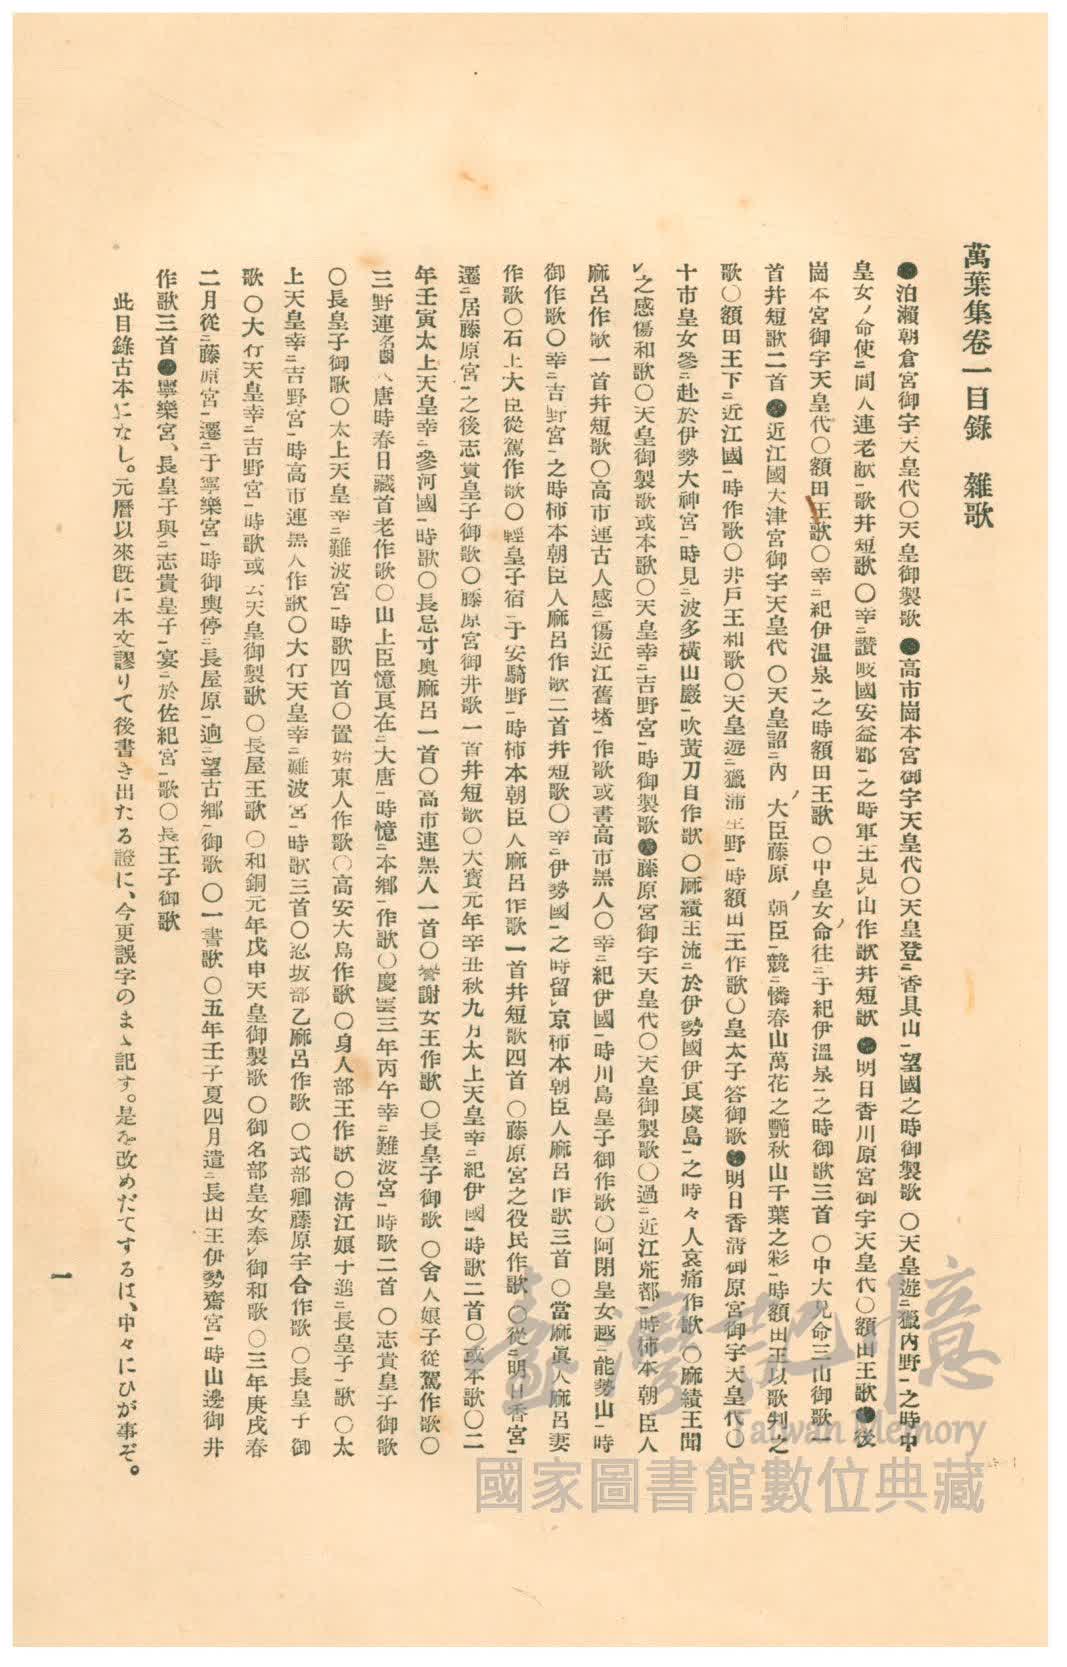 萬葉集卷一目錄　雜歌
●泊瀨朝倉宮御宇天皇代〇天皇御製歌 ●高市崗本宮御宇天皇代〇天皇登ニ香具山一望國之時御製歌 〇天皇遊ニ獵內野一之時中
皇女ノ命使ニ間人連老獻一歌幷短歌〇幸ニ讚岐國安益郡一之時軍王見レ山作歌幷短歌 ●明日香川原宮御宇天皇代〇額田王歌●後
崗本宮御宇天皇代〇額田王歌〇幸ニ紀伊温泉一之時額田王歌 〇中皇女命往ニ于紀伊溫泉一之時御歌三首 〇中大兄命三山御歌一
首幷短歌二首 ●近江國大津宮御宇天皇代 〇天皇詔ニ內ノ大臣藤原ノ朝臣一競ニ憐春山萬花之艷秋山千葉之彩一時額田王以歌判之
歌〇額田王下ニ近江國一時作歌〇井戸王和歌〇天皇遊ニ獵蒲生野一時額田王作歌〇皇太子答御歌●明日香淸御原宮御宇天皇代〇
十市皇女參ニ赴於伊勢大神宮一時見ニ波多橫山巖一吹黃刀自作歌 〇麻續王流ニ於伊勢國伊良虞島一之時々人哀痛作歌〇麻績王聞
レ之感傷和歌〇天皇御製歌或本歌〇天皇幸ニ吉野宮一時御製歌●藤原宮御宇天皇代〇天皇御製歌〇過ニ近江荒都一時柿本朝臣人
麻呂作歌一首幷短歌〇高市連古人感ニ傷近江舊堵一作歌或書高市黑人〇幸ニ紀伊國一時川島皇子御作歌〇阿閉皇女越ニ能勢山一時
御作歌〇幸ニ吉野宮一之時柿本朝臣人麻呂作歌二首幷短歌〇幸ニ伊勢國一之時留レ京柿本朝臣人麻呂作歌三首 〇當麻眞人麻呂妻
作歌〇石上大臣從駕作歌〇輕皇子宿ニ于安騎野一時柿本朝臣人麻呂作歌一首幷短歌四首 〇藤原宮之役民作歌 〇從ニ明日香宮一
遷ニ居藤原宮一之後志貴皇子御歌〇藤原宮御井歌一首幷短歌〇大寶元年辛丑秋九月太上天皇幸ニ紀伊國一時歌二首〇或本歌〇二
年壬寅太上天皇幸ニ參河國一時歌〇長忌寸奧麻呂一首〇高市連黑人一首〇譽謝女王作歌 〇長皇子御歌 〇舍人娘子從駕作歌〇
三野連名闕入唐時春日藏首老作歌〇山上臣憶良在ニ大唐一時憶ニ本鄉一作歌〇慶雲三年丙午幸ニ難波宮一時歌二首 〇志貴皇子御歌
〇長皇子御歌〇太上天皇幸ニ難波宮一時歌四首〇置始東人作歌〇高安大島作歌〇身人部王作歌 〇淸江娘子進ニ長皇子一歌 〇太
上天皇幸ニ吉野宮一時高市連黑人作歌〇大行天皇幸ニ難波宮一時歌三首〇忍坂部乙麻呂作歌 〇式部卿藤原宇合作歌 〇長皇子御
歌 〇大行天皇幸ニ吉野宮一時歌或云天皇御製歌 〇長屋王歌 〇和銅元年戊申天皇御製歌 〇御名部皇女奉レ御和歌 〇三年庚戌春
二月從ニ藤原宮一遷ニ于寧樂宮一時御輿停ニ長屋原一迥ニ望古鄉一御歌〇一書歌〇五年壬子夏四月遣ニ長田王伊勢齋宮一時山邊御井
作歌三首●寧樂宮、長皇子與ニ志貴皇子一宴ニ於佐紀宮一歌〇長王子御歌
此目錄古本になし。元曆以來既に本文謬りて後書き出たる證に、今更誤字のまゝ記す。是を改めだてするは、中々にひが事ぞ。
一
臺灣記憶
Taiwan Memory
國家圖書館數位典藏